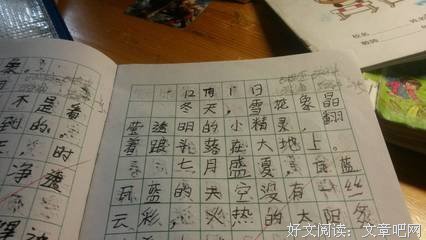 果，
不是看
到的，
三，时
净透
12月1日
冬天，雪花象晶
莹透明的小精灵，翻
着跟斗落在大地上。
七月盛夏，瓦蓝
瓦蓝的天空没有一丝
云彩，火热的太阳
好文阅读：文章吧网